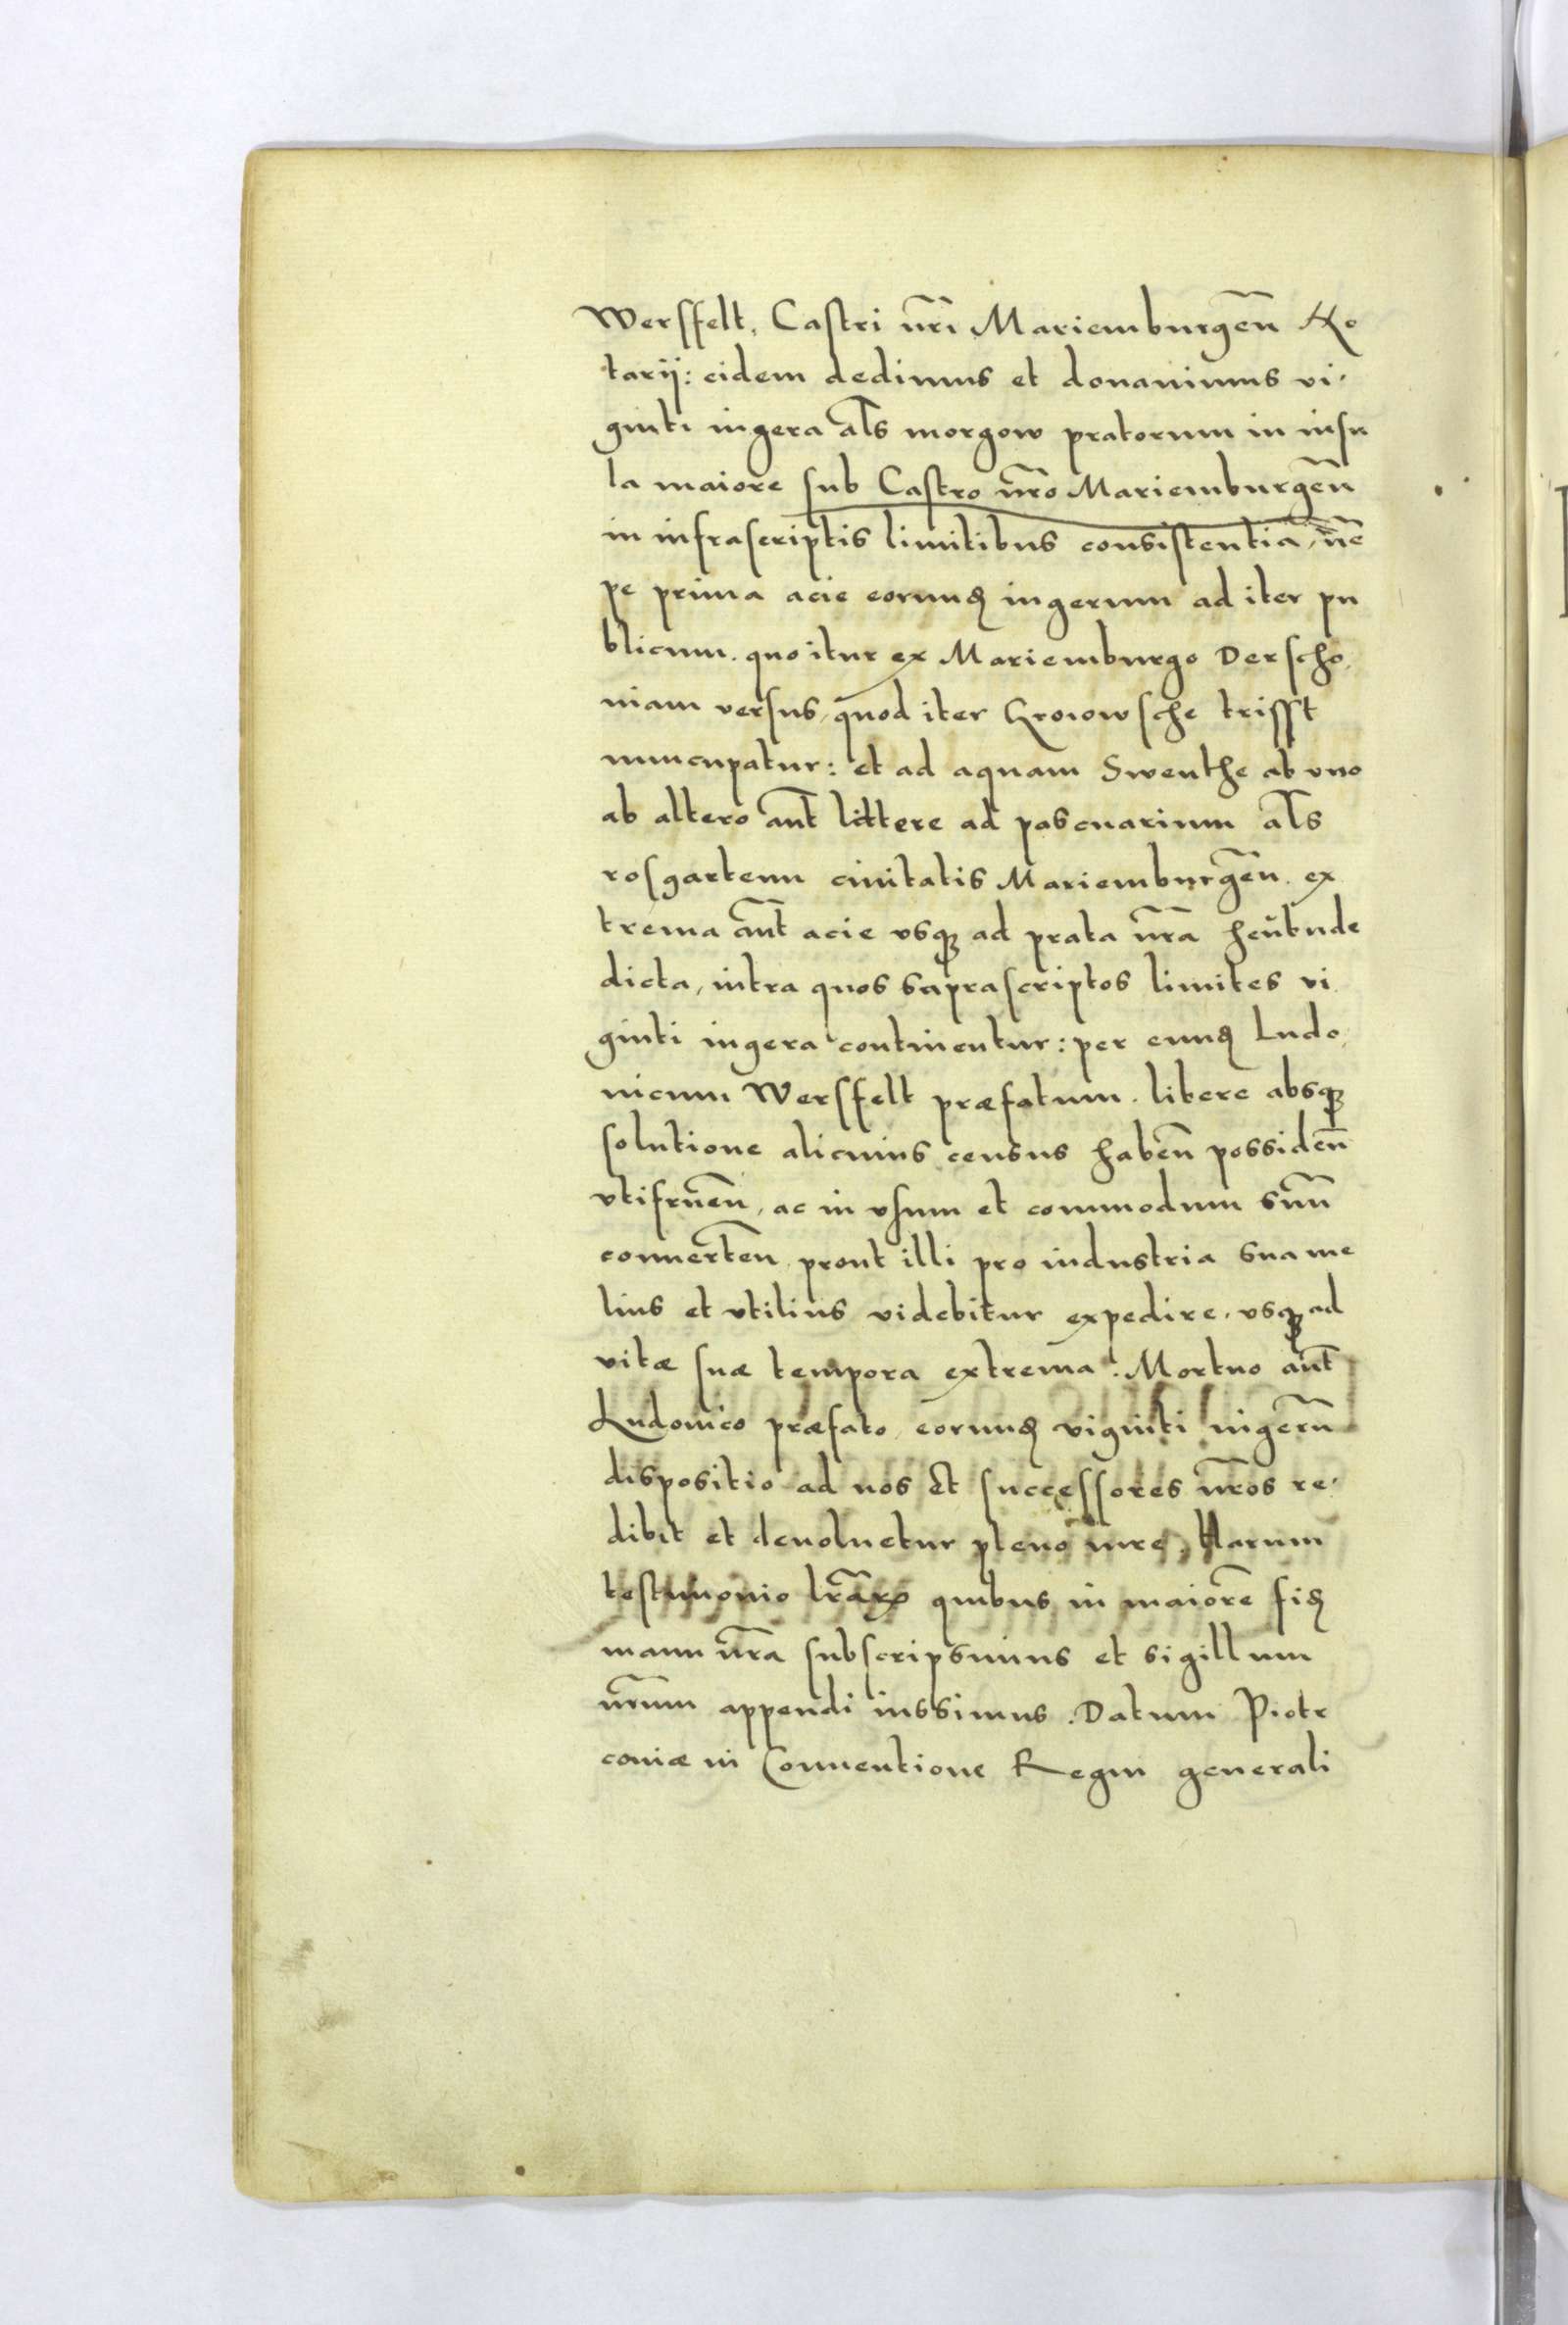 Werffelt, Castri nr̄i Mariemburgen̄ No
tarij: eidem dedimus et donauimus vi-
ginti iugera al̄s morgow pratorum in insu
la maiore sub Castro nr̄o Mariemburgen̄
in infrascriptis limitibus consistentia, nē
pe prima acie eorundꝫ iugerum ad iter pu
blicum. quo itur ex Mariemburgo Derscho
uiam versus, quod iter Grocowsche trifft
nuncupatur: et ad aquam Swenthe ab vno
ab altero aūt littere ad pascuarium al̄s
rosgartenn ciuitatis Mariemburgen̄. ex
trema aūt acie vsqꝫ ad prata nr̄a heŭbude
dicta, intra quos suprascriptos limites vi
ginti iugera continentur: per eundꝫ Ludo,
uicum Werffelt præfatum. libere absqꝫ
solutione alicuius census haben̄ possiden̄
vtifruen̄, ac in vsum et commodum suū
conuerten̄, prout illi pro industria sua me
lius et vtilius videbitur expedire, vsqꝫ ad
vitæ suæ tempora extrema. Mortuo aūt
Ludouico præfato, eorundꝫ viginti iugerū
dispositio ad nos et successores nr̄os re-
dibit et deuoluetur pleno iure, Harum
testimonio lr̄aꝝ quibus in maiorē fidꝫ
manu nr̄a subscripsimus et sigillum
nr̄um appendi iussimus. Datum Piotr
couiæ in Conuentione Regni generali